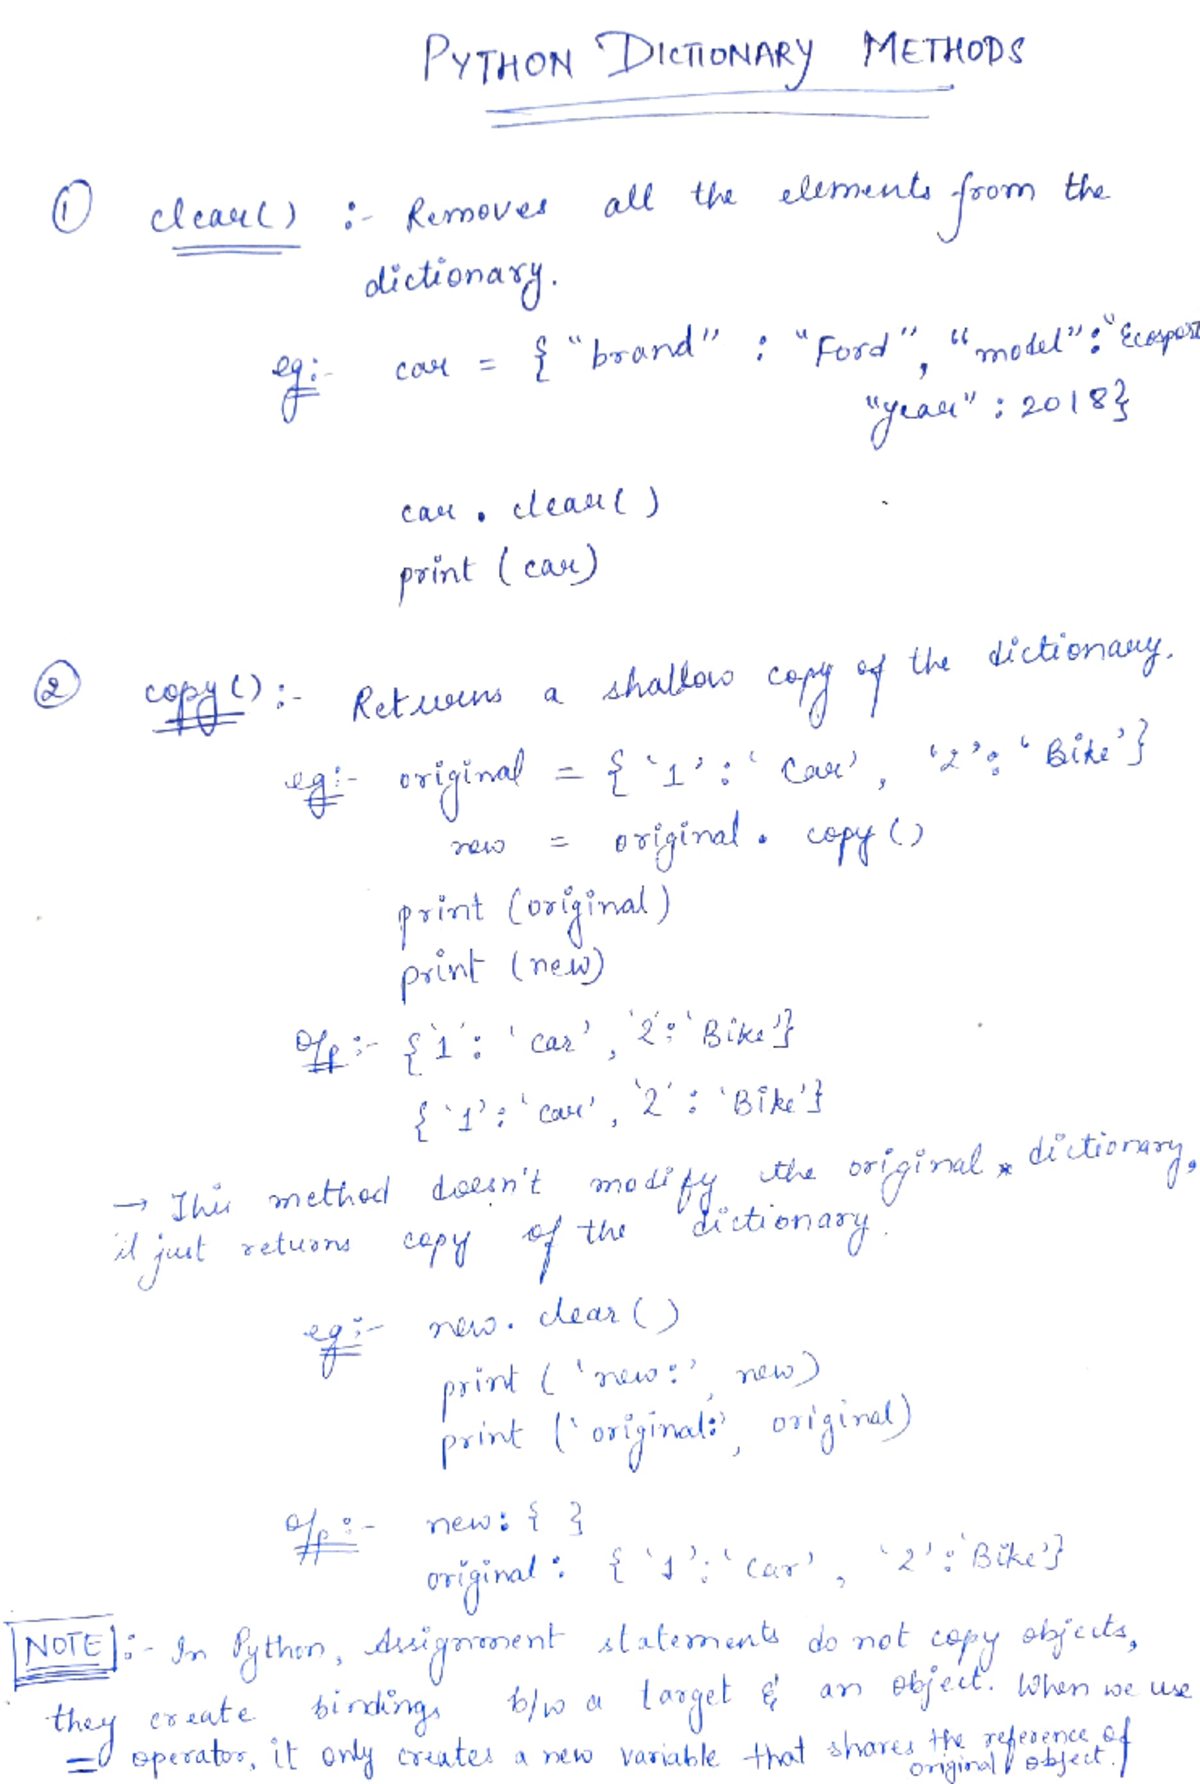 PYTHON DICTIONARY METHODS
① clear() :- Removes all the elements from the
dictionary.
eg:- car = { "brand" : "Ford", "model" : "Ecosport
"year" : 2018}
car . clear()
print (car)
② copy() :- Returns a shallow copy of the dictionary.
eg:- original = { '1' : 'Car', '2' : 'Bike'}
new = original . copy()
print (original)
print (new)
o/p :- {'1' : 'car', '2' : 'Bike'}
{ '1' : 'car', '2' : 'Bike'}
→ This method doesn't modify the original * dictionary,
it just returns copy of the dictionary.
eg:- new. clear ()
print ( 'new:', new)
print ('original:', original)
o/p :- new : { }
original : { '1' : 'Car', '2' : 'Bike'}
NOTE :- In Python, Assignment statements do not copy objects,
they create bindings b/w a target & an object. When we use
= operator, it only creates a new variable that shares the reference of
original object.